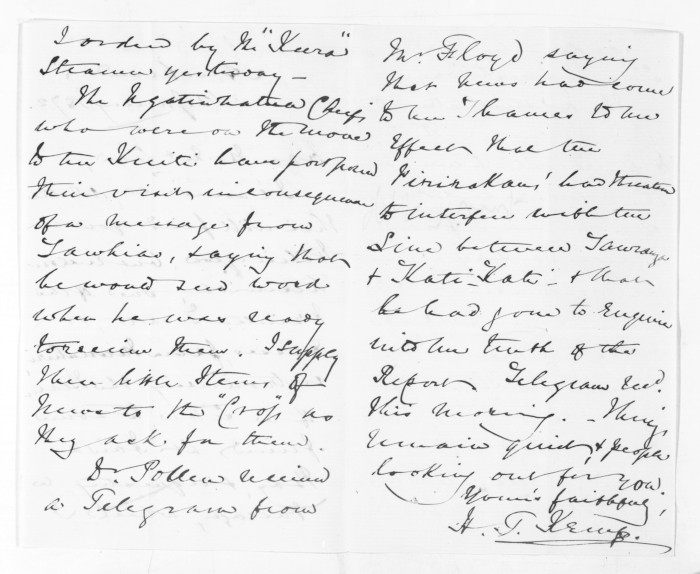 I ordered by the "Keera"
Steamer yesterday —
The Ngatiwhatua Chiefs
who were on the move
to the Kuiti have postponed
their visit in consequence
of a message from
Tawhiao, saying that
he would send word
when he was ready
to receive them. I supply
these little Items of
News to the "Cross" as
they ask for them.
Dr. Pollen received
a Telegram from
Mr. Floyd saying
that news had come
to the Thames to the
Effect that the
Piririkaus' had threatened
to interfere with the
Line between Tauranga
& Kati-Kati - & that
he had gone to Enquire
into the truth of the
Report Telegram recd.
this morning. — Things
remain quiet, & people
looking out for you.
Yours faithfully,
H. T. Kemp.